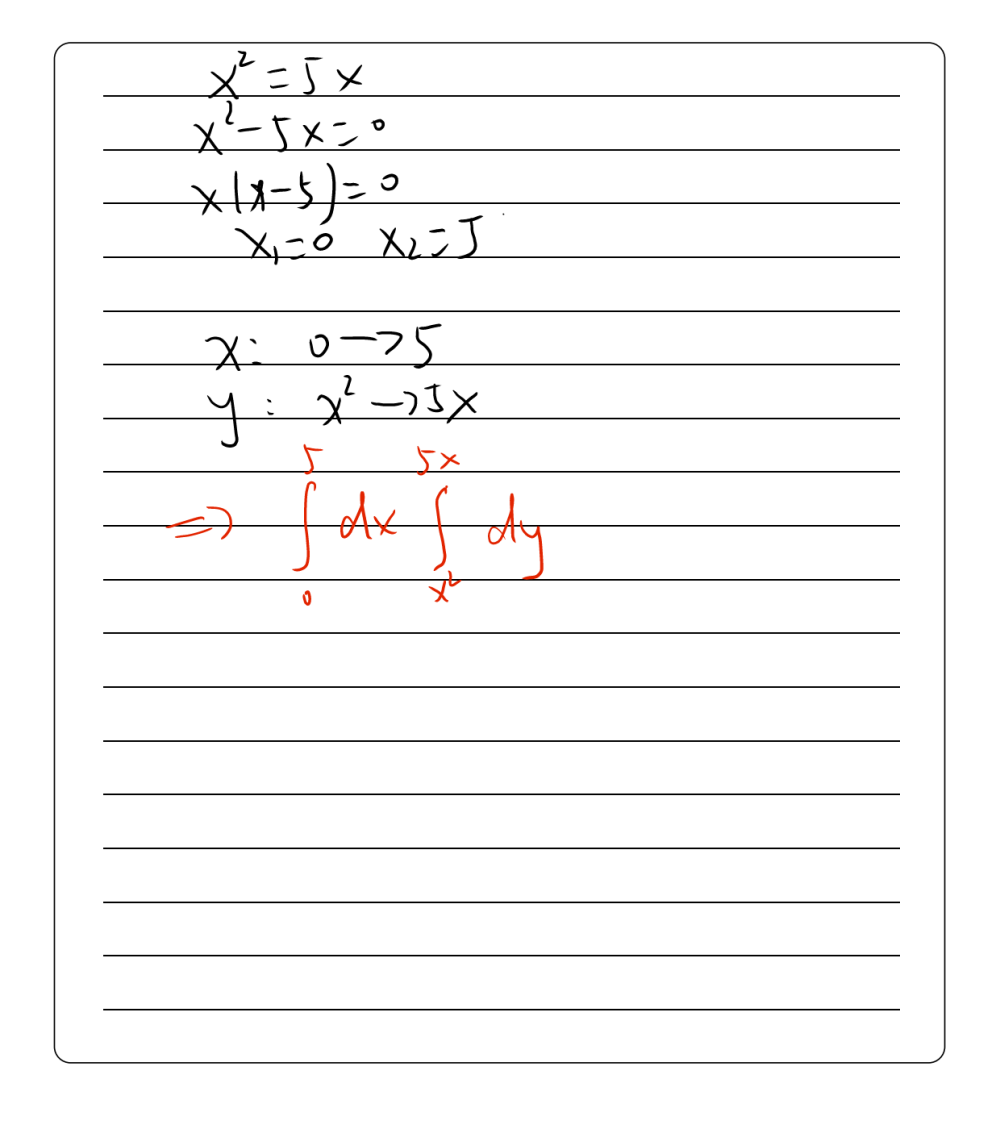 x² = 5x
x² - 5x = 0
x(x-5) = 0
x₁ = 0 x₂ = 5
x: 0 → 5
y: x² → 5x
⇒ ∫₀⁵ dx ∫_{x²}^{5x} dy